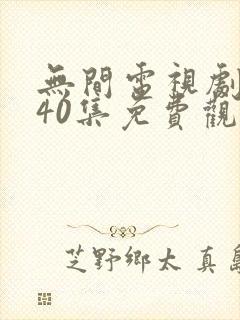 無間電視劇
40集免費觀
芝野鄉太 真島